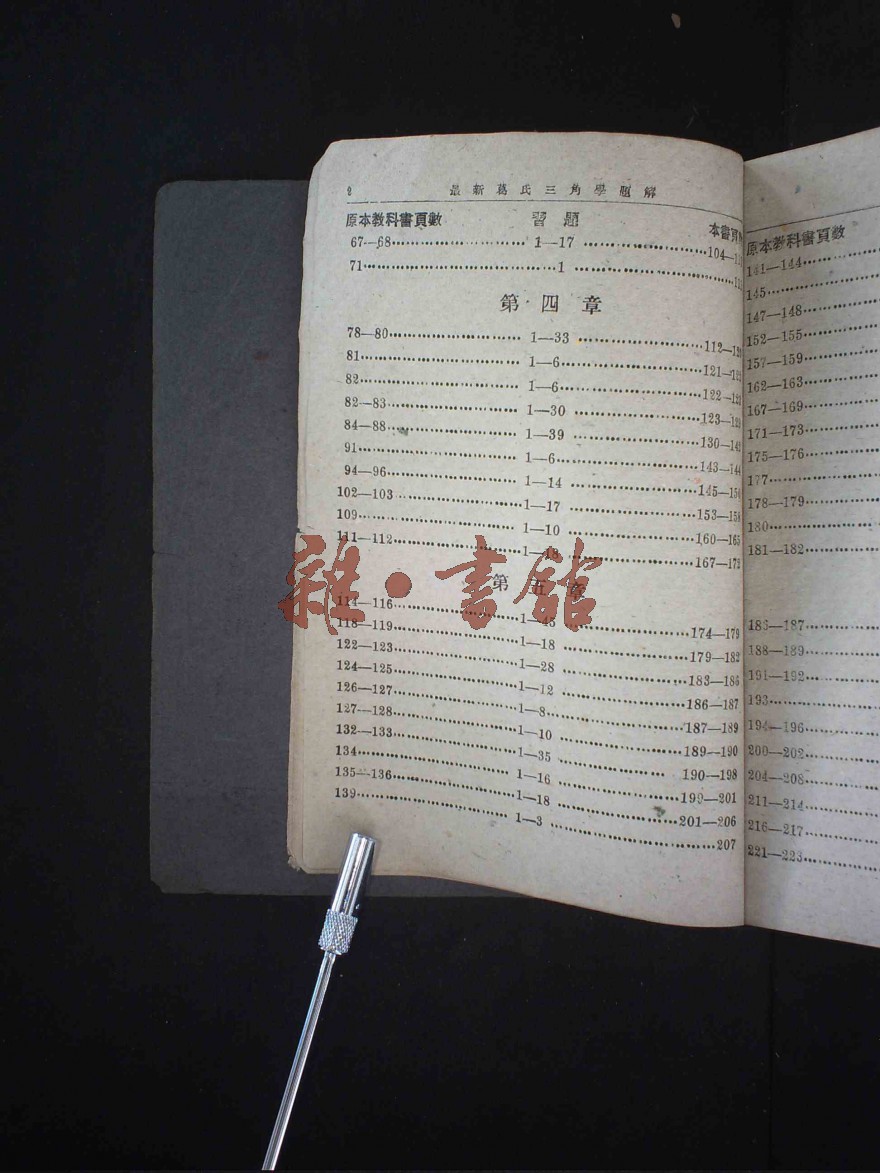 2 最新葛氏三角學題解
原本教科書頁數 習題 本書頁
67—68 1—17 104—
71 1
第四章
78—80 1—33 112—
81 1—6 121—
82 1—6 122—
82—83 1—30 123—
84—88 1—39 130—
91 1—6 143—144
94—96 1—14 145—
102—103 1—17 153—158
109 1—10 160—165
111—112 1—18 167—
第五章
114—116 1—45 174—179
118—119 1—18 179—182
122—123 1—28 183—186
124—125 1—12 186—187
126—127 1—8 187—189
127—128 1—10 189—190
132—133 1—35 190—198
134 1—16 199—201
135—136 1—18 201—206
139 1—3 207
雜·書館
原本教科書頁數
141—144
145
147—148
152—155
157—159
162—163
167—169
171—173
175—176
177
178—179
180
181—182
186—187
188—189
191—192
193
194—196
200—202
204—208
211—214
216—217
221—223